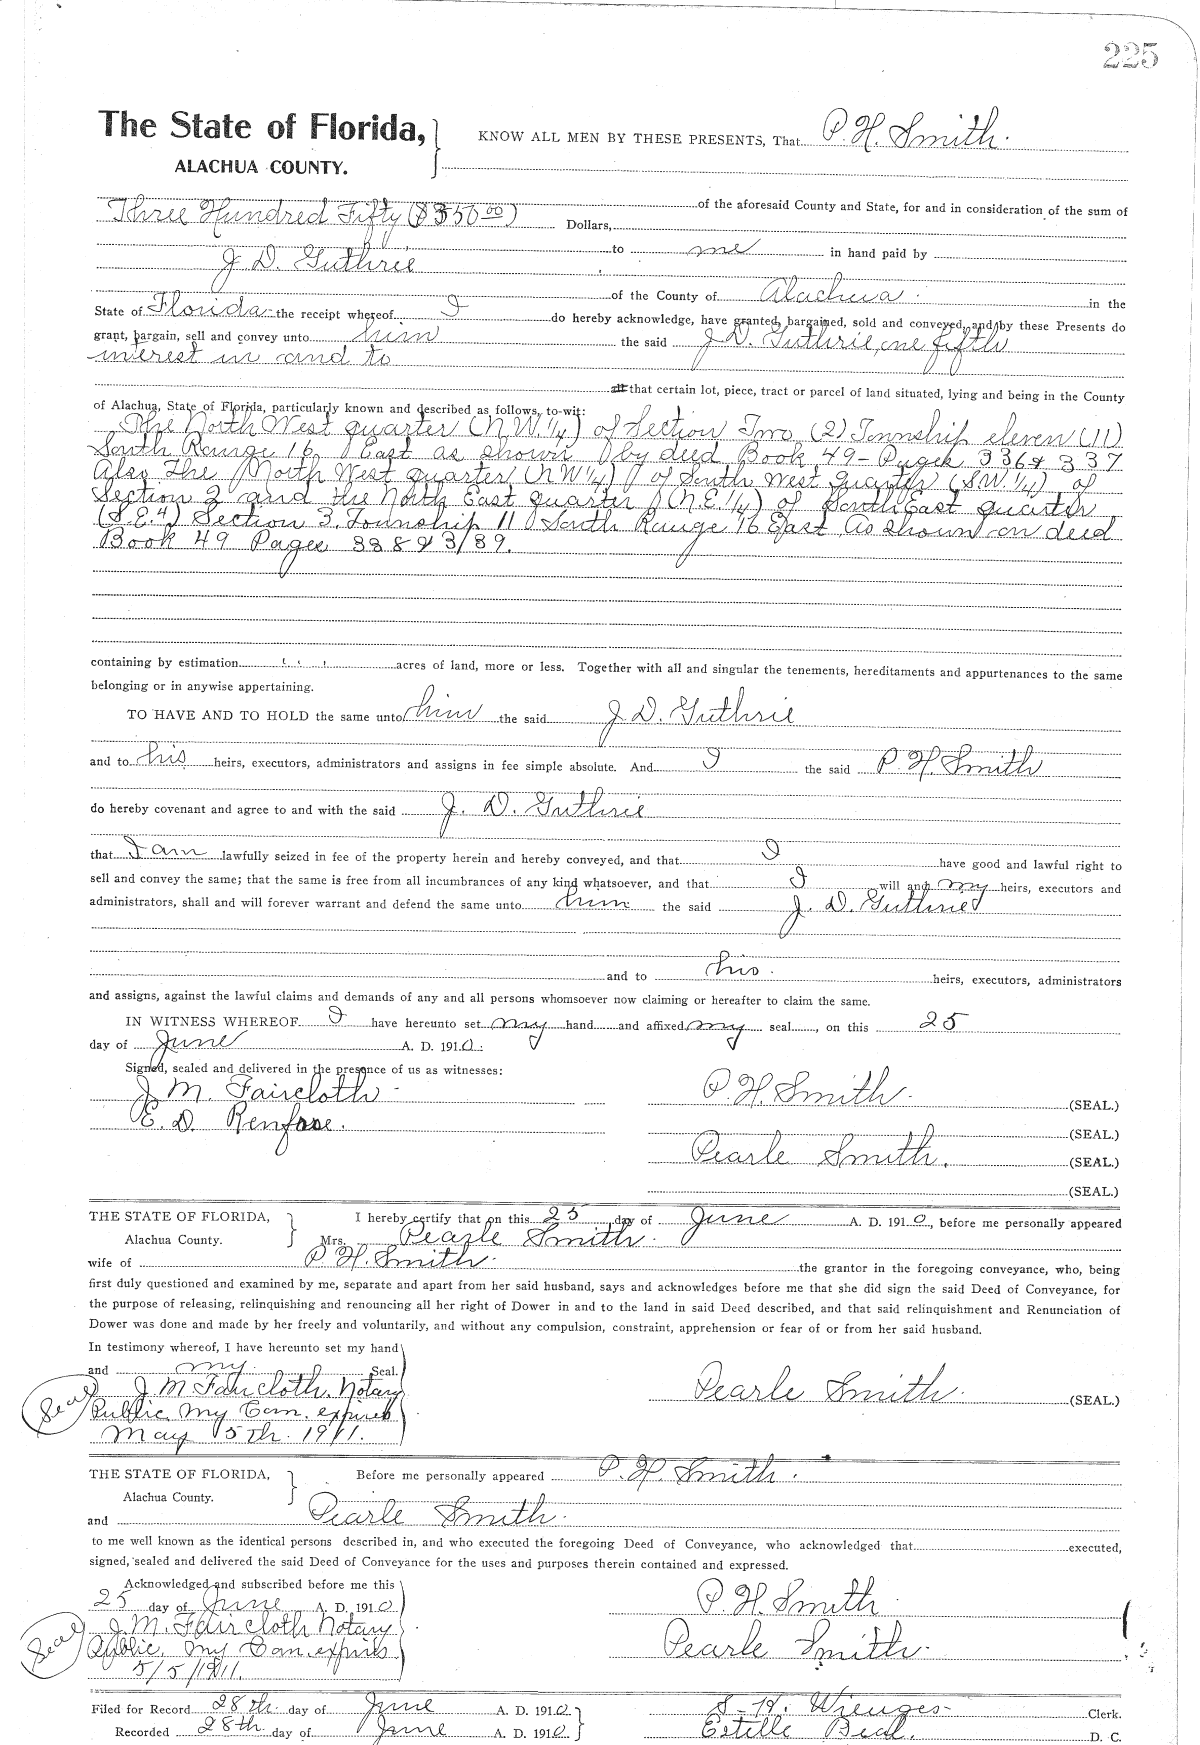 225
The State of Florida, KNOW ALL MEN BY THESE PRESENTS, That P. H. Smith.
ALACHUA COUNTY.
of the aforesaid County and State, for and in consideration of the sum of
Three Hundred Fifty ($350 00) Dollars,
to me in hand paid by
J. D. Guthrie
of the County of Alachua. in the
State of Florida the receipt whereof I do hereby acknowledge, have granted, bargained, sold and conveyed, and by these Presents do
grant, bargain, sell and convey unto him the said J. D. Guthrie, one fifth
interest in and to
all that certain lot, piece, tract or parcel of land situated, lying and being in the County
of Alachua, State of Florida, particularly known and described as follows, to-wit:
The North West quarter (N.W.¼) of Section Two (2) Township eleven (11)
South Range 16 East as shown by deed Book 49 - Pages 336 & 337
Also The North West quarter (NW¼) of South West quarter (S.W.¼) of
Section 2 and the North East quarter (N.E.¼) of South East quarter
(S.E.4) Section 3. Township 11 South Range 16 East As shown on deed
Book 49 Pages 338 &
containing by estimation acres of land, more or less. Together with all and singular the tenements, hereditaments and appurtenances to the same
belonging or in anywise appertaining.
TO HAVE AND TO HOLD the same unto him the said J. D. Guthrie
and to his heirs, executors, administrators and assigns in fee simple absolute. And I the said P. H. Smith
do hereby covenant and agree to and with the said J. D. Guthrie
that I am lawfully seized in fee of the property herein and hereby conveyed, and that I have good and lawful right to
sell and convey the same; that the same is free from all incumbrances of any kind whatsoever, and that I will and my heirs, executors and
administrators, shall and will forever warrant and defend the same unto him the said J. D. Guthrie
and to his heirs, executors, administrators
and assigns, against the lawful claims and demands of any and all persons whomsoever now claiming or hereafter to claim the same.
IN WITNESS WHEREOF I have hereunto set my hand and affixed my seal, on this 25
day of June A. D. 1910.
Signed, sealed and delivered in the presence of us as witnesses:
J. M. Faircloth P. H. Smith. (SEAL.)
E. D. Renfroe. (SEAL.)
Pearle Smith. (SEAL.)
(SEAL.)
THE STATE OF FLORIDA, I hereby certify that on this 25 day of June A. D. 1910, before me personally appeared
Alachua County. Mrs. Pearle Smith.
wife of P. H. Smith. the grantor in the foregoing conveyance, who, being
first duly questioned and examined by me, separate and apart from her said husband, says and acknowledges before me that she did sign the said Deed of Conveyance, for
the purpose of releasing, relinquishing and renouncing all her right of Dower in and to the land in said Deed described, and that said relinquishment and Renunciation of
Dower was done and made by her freely and voluntarily, and without any compulsion, constraint, apprehension or fear of or from her said husband.
In testimony whereof, I have hereunto set my hand
and my Seal.
J M Faircloth. Notary Pearle Smith. (SEAL.)
Seal Public. My Com. expires
May 5th. 1911.
THE STATE OF FLORIDA, Before me personally appeared P. H. Smith.
Alachua County.
and Pearle Smith.
to me well known as the identical persons described in, and who executed the foregoing Deed of Conveyance, who acknowledged that executed,
signed, sealed and delivered the said Deed of Conveyance for the uses and purposes therein contained and expressed.
Acknowledged and subscribed before me this
25 day of June A. D. 1910 P. H. Smith
J. M. Faircloth Notary
Seal Public. My Com. expires Pearle Smith.
5/5/1911.
Filed for Record 28th day of June A. D. 1910. S. H. Wienges Clerk.
Recorded 28th day of June A. D. 1910. Estelle Beal. D. C.